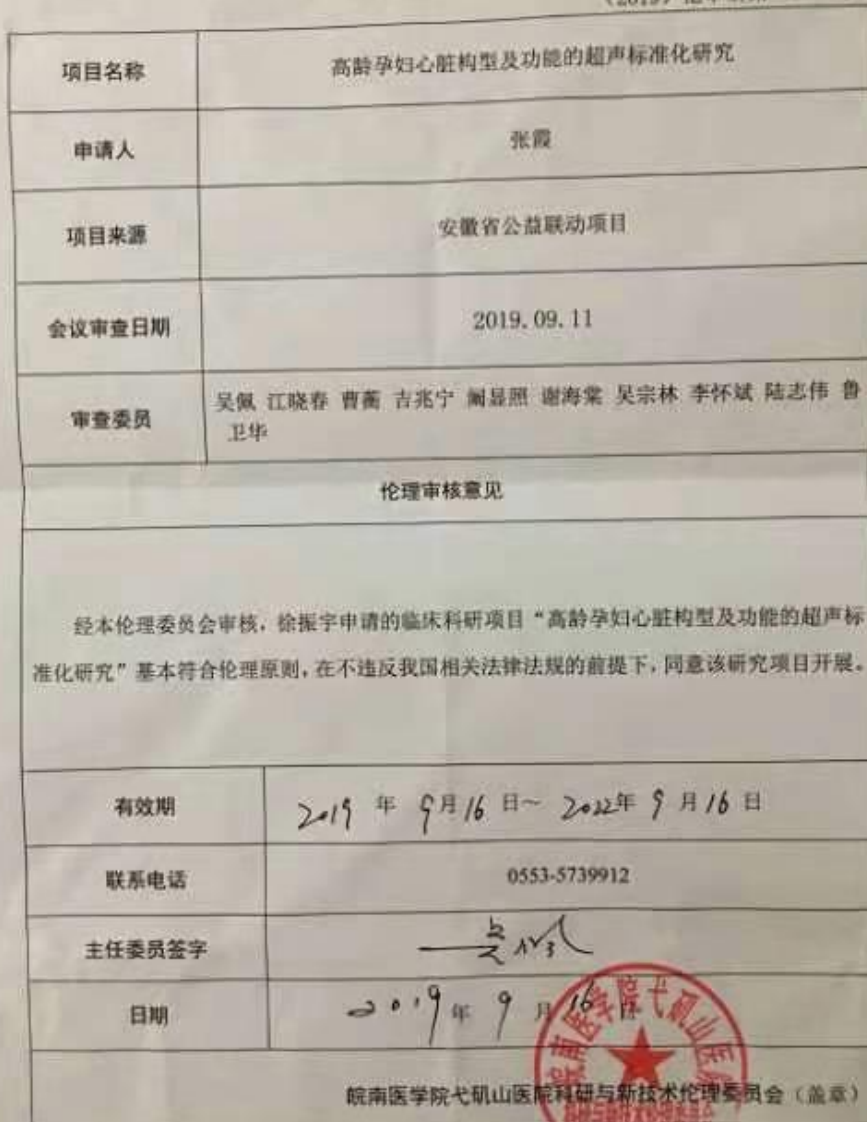 项目名称 高龄孕妇心脏构型及功能的超声标准化研究
申请人 张霞
项目来源 安徽省公益联动项目
会议审查日期 2019.09.11
审查委员 吴佩 江晓春 曹蘅 吉兆宁 阚显照 谢海棠 吴宗林 李怀斌 陆志伟 鲁
卫华
伦理审核意见
经本伦理委员会审核，徐振宇申请的临床科研项目“高龄孕妇心脏构型及功能的超声标
准化研究”基本符合伦理原则，在不违反我国相关法律法规的前提下，同意该研究项目开展。
有效期 2019 年 9月16 日～ 2022年 9 月16 日
联系电话 0553-5739912
主任委员签字
日期 2019年 9 月 16 日
皖南医学院弋矶山医院科研与新技术伦理委员会（盖章）
皖南医学院弋矶山医院